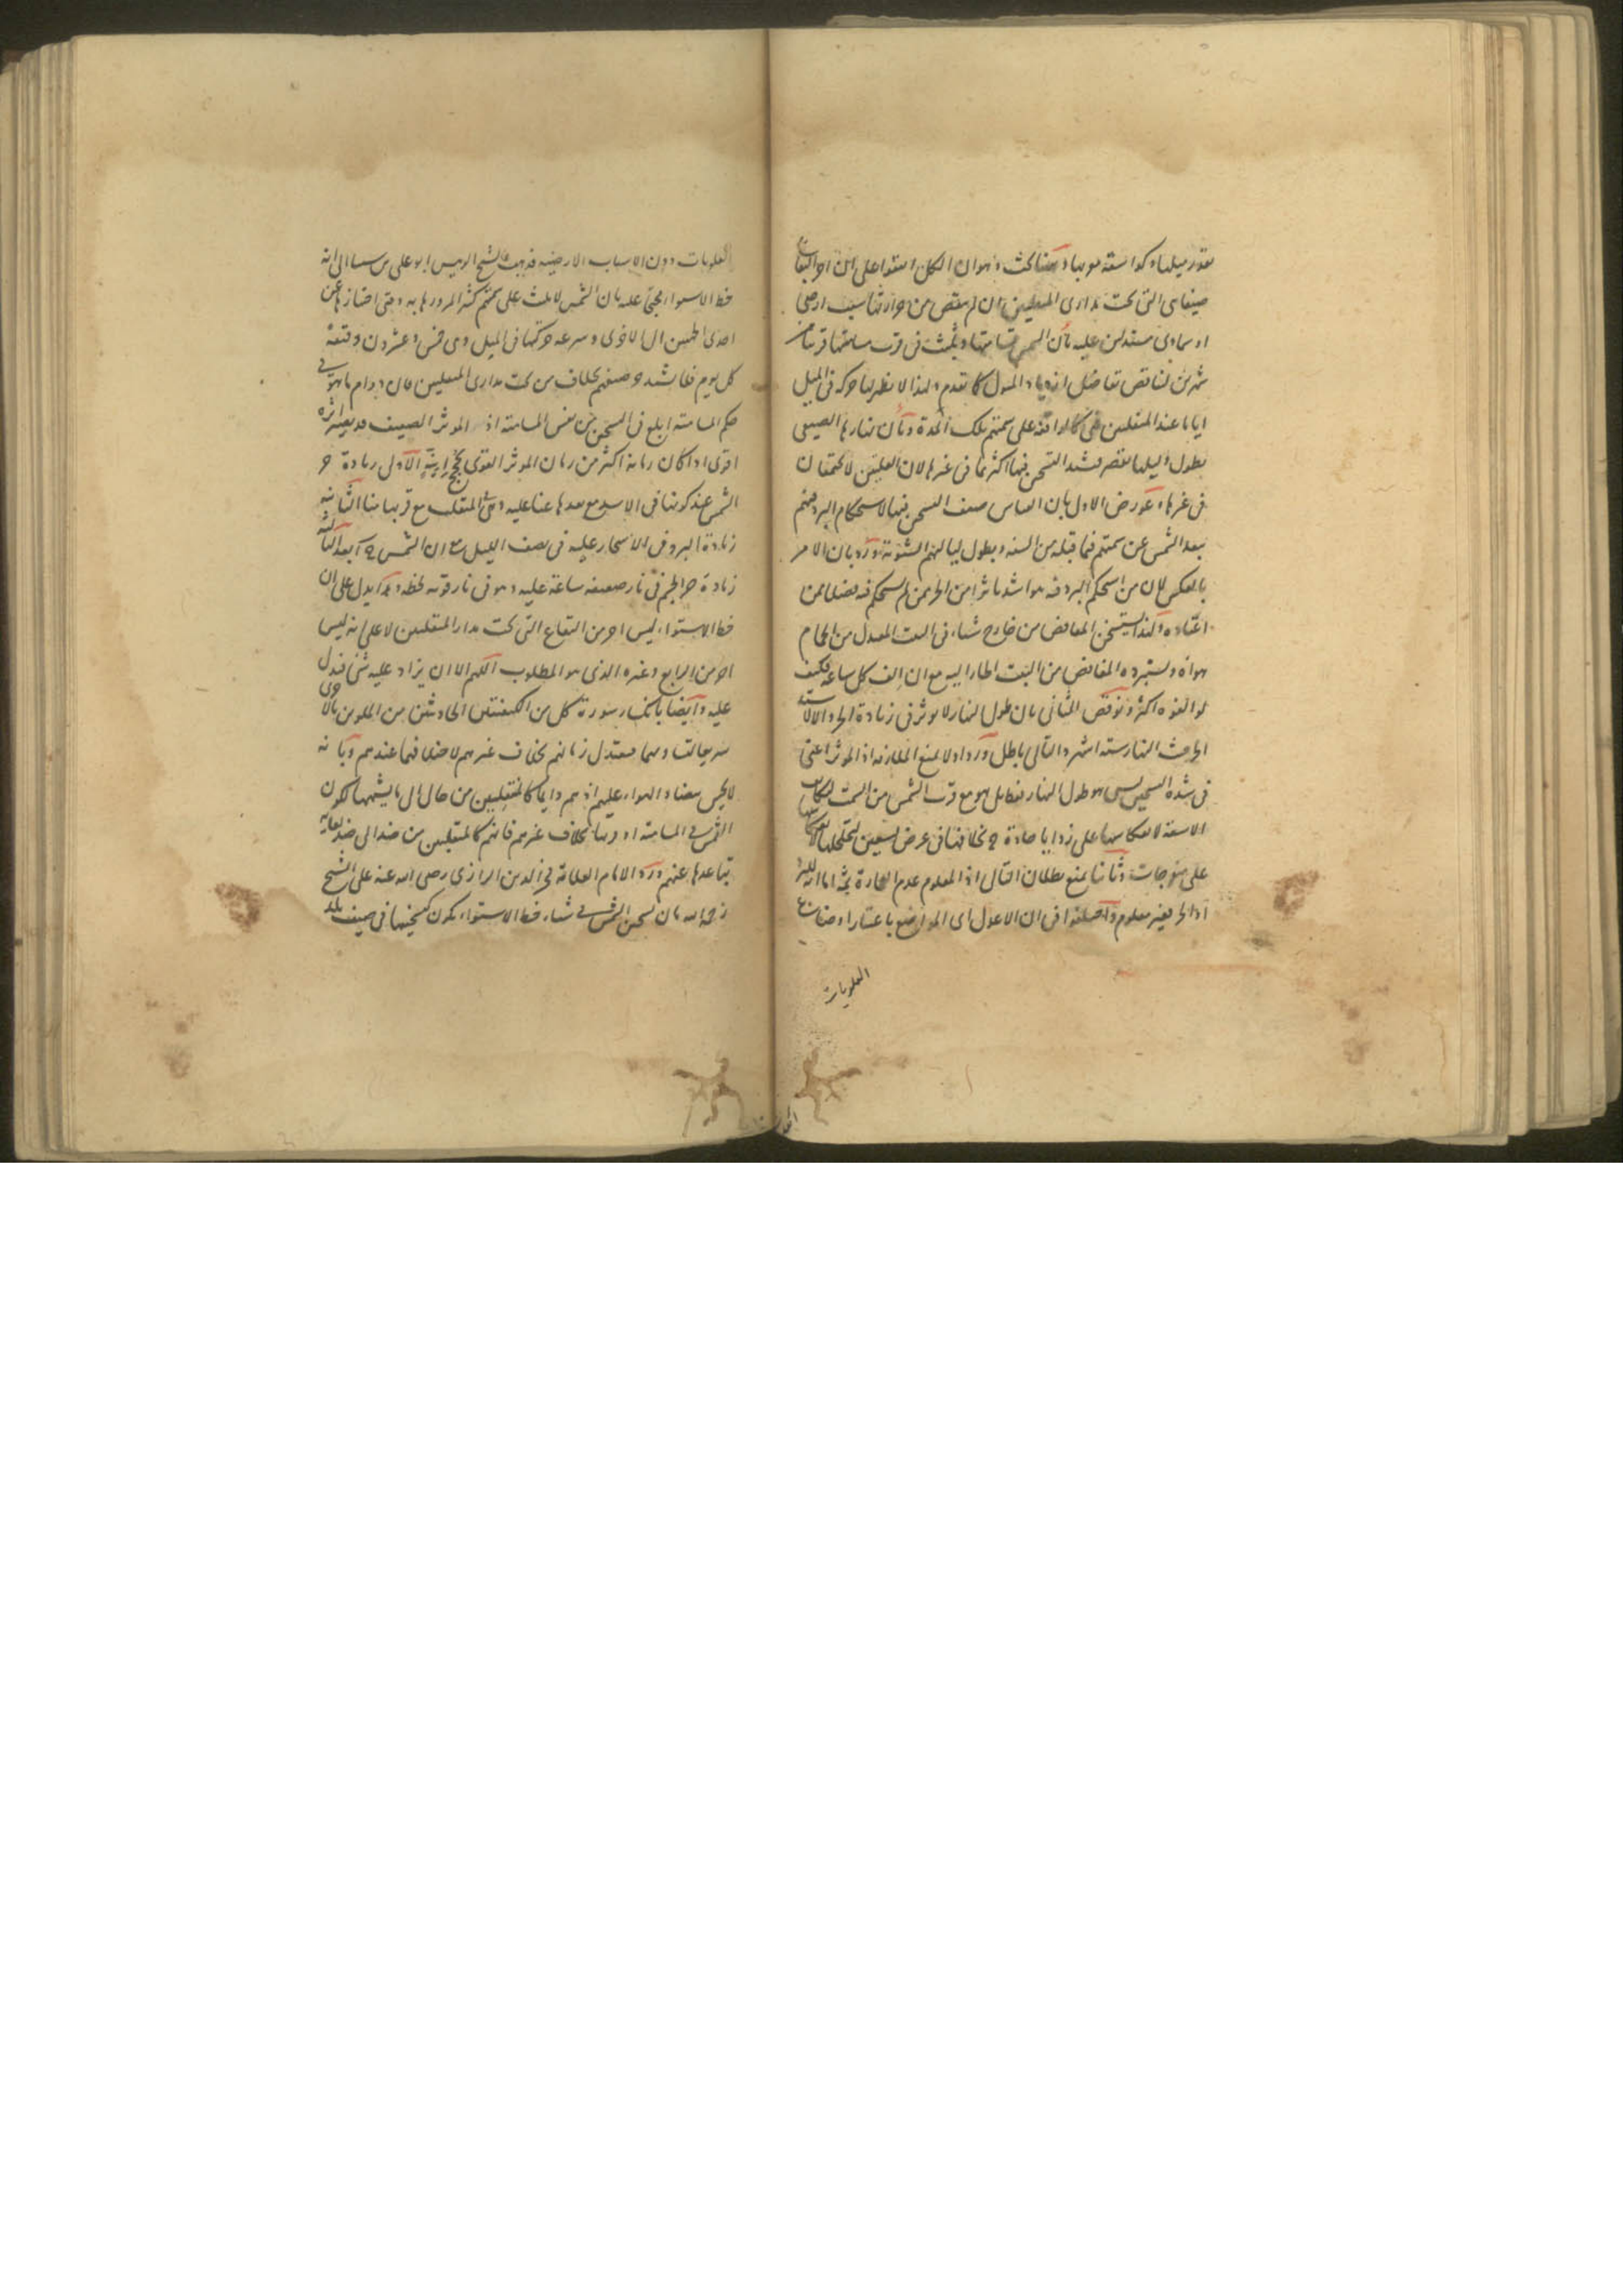 بقدر ميلها وكذا سنة موبها وههنا بحث وهو ان الكل اتفقوا على ان احر البقاع
صيفا هي التي تحت مداري المنقلبين ان لم ينقص من حرارتها سبب ارضي
او سماوي مستدلين عليه بأن الشمس تسامتها ويلبث في قرب مسامتها قريبا من
شهرين لتناقص تفاضل ازدياد الميول كما تقدم ولهذا لا يظهر لها حركة في الميل
اياما عند المنقلبين فهي كالواقفة على سمتهم تلك المدة وبأن نهارها الصيفي
يطول وليلها يقصر فيشتد التسخن فيها اكثر مما في غيرها لان العلتين لا تجتمعان
في غيرها وعورض الاول بان القياس ضعف التسخن فيها لاستحكام البرد فيهم
ببعد الشمس عن سمتهم فيما قبله من السنة وبطول لياليهم الشتوية ورد بان الامر
بالعكس لان من استحكم البرد فيه هو اشد تاثرا من الحر ممن لم يستحكم فيه فضلا عمن
اعتاده ولهذا يستسخن المغافص من خارج شتاء في البيت المعتدل من الحمام
هواه ويستبرده المغافص من البيت الحار اليه مع ان الف كل ساعة فكيف
لو الفوه اكثر ونوقض الثاني بان طول النهار لا يوثر في زيادة الحر والا لاشتد
الحر حيث النهار ستة اشهر والتالي باطل ورد اولا بمنع الملازمة اذ الموثر اعني
في شدة التسخين ليس هو طول النهار فقط بل هو مع قرب الشمس من السمت
الاشعة لانعكاسها على زوايا حادة ح بخلافها في عرض تسعين
على منفرجات وثانيا بمنع بطلان التالي اذ المعلوم عدم العمارة ثمة اما انه للبرد
او الحر فغير معلوم واختلفوا في ان الاعدل اي المواضع باعتبار اوضاع
العلويات
العلويات دون الاسباب الارضية فذهب الشيخ الرئيس ابو على بن سينا الى انه
خط الاستواء محتجا عليه بان الشمس لا تلبث على سمتهم كثير المرورها به وقتي اجتيازها عن
احدى الجهتين الى الاخرى وسرعة حركتها في الميل وهي خمس وعشرون دقيقة
كل يوم فلا يشتد حر صيفهم بخلاف من تحت مداري المنقلبين فان دوام ما هو في
حكم المسامتة ابلغ في التسخين من نفس المسامتة اذ الموثر الضعيف قد يصير اثره
اقوى اذا كان زمانه اكثر من زمان الموثر القوي بحجج اربعة الاول زيادة حر
الشمس عند كونها في الاسد مع بعدها عنا عليه وهي في المنقلب مع قربها منا الثانية
زيادة البرد في الاسحار عليه في نصف الليل مع ان الشمس ح ابعد الثالثة
زيادة حر الجسم في نار ضعيفة ساعة عليه وهو في نار قوية لحظة وهذا يدل على ان
خط الاستواء ليس احر من البقاع التي تحت مدار المنقلبين لا على انه ليس
احر من الرابع وغيره الذي هو المطلوب اللهم الا ان يزاد عليه شئ فيدل
عليه وايضا بانكسار سورة كل من الكيفيتين الحادثتين من الملوين بالاخرى
سريعا لتساويهما فيعتدل زمانهم بخلاف غيرهم لاختلافهما عندهم وبانه
لا يحس بتضاد الهواء عليهم اذ هم دايما كالمنتقلين من حال الى ما يشبهها لكون
الشمس في المسامتة او قربها بخلاف غيرهم فانهم كالمنتقلين من ضد الى ضد لغاية
تباعدها عنهم ورد الامام العلامة فخر الدين الرازي رضي الله عنه على الشيخ
رحمه الله بان تسخين الشمس في شتاء خط الاستواء يكون كتسخينها في صيف بلد